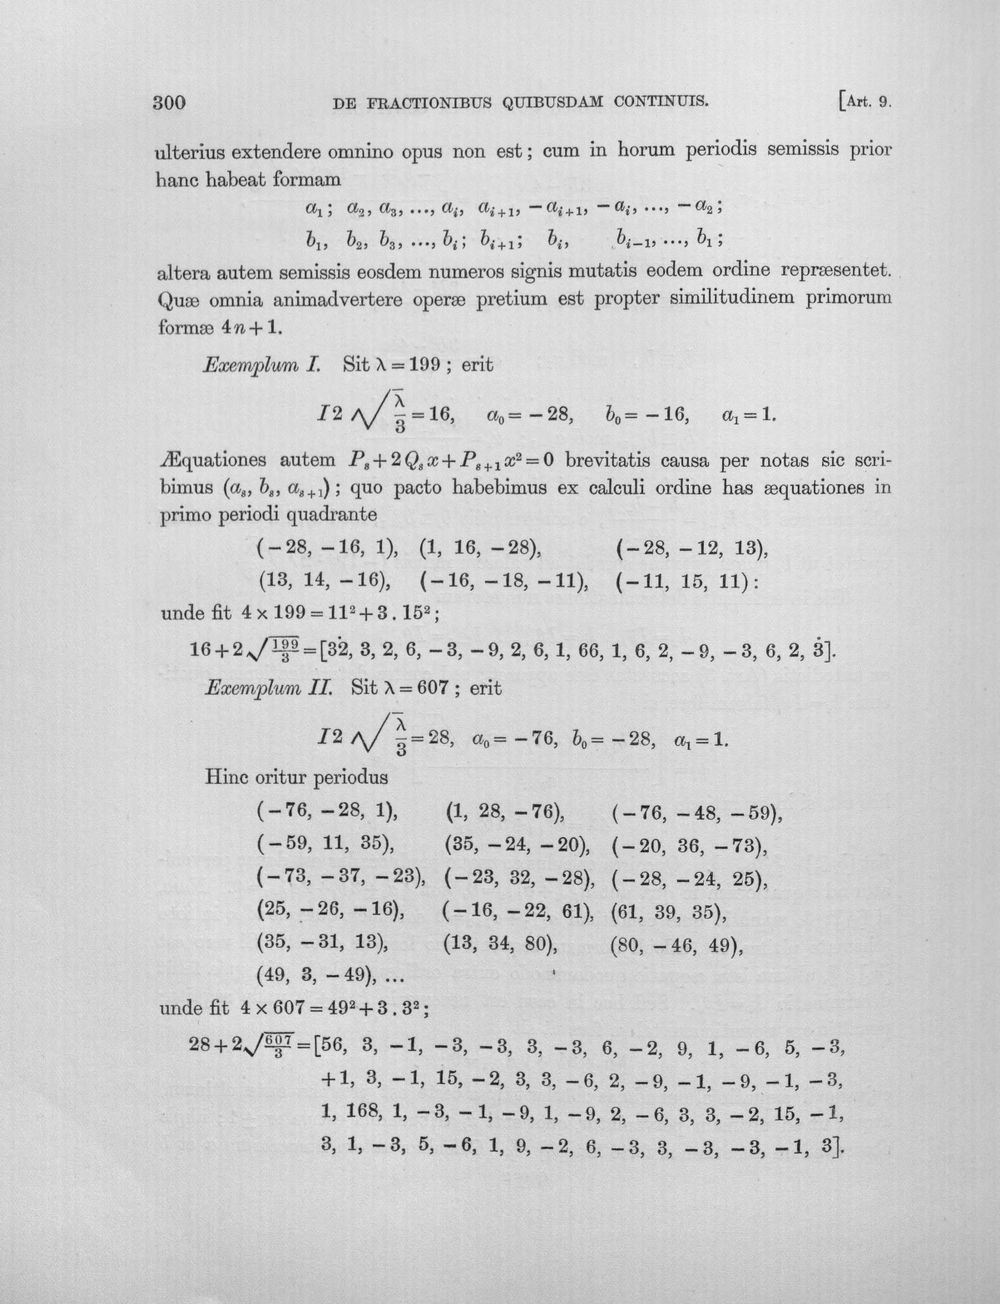 300 DE FRACTIONIBUS QUIBUSDAM CONTINUIS. [Art. 9.
ulterius extendere omnino opus non est; cum in horum periodis semissis prior
hanc habeat formam
a₁; a₂, a₃, ..., aᵢ, aᵢ₊₁, −aᵢ₊₁, −aᵢ, ..., −a₂;
b₁, b₂, b₃, ..., bᵢ; bᵢ₊₁; bᵢ, bᵢ₋₁, ..., b₁;
altera autem semissis eosdem numeros signis mutatis eodem ordine repræsentet.
Quæ omnia animadvertere operæ pretium est propter similitudinem primorum
formæ 4n+1.
Exemplum I. Sit λ=199; erit
I2√(λ/3)=16, a₀=−28, b₀=−16, a₁=1.
Æquationes autem Pₛ+2Qₛx+Pₛ₊₁x²=0 brevitatis causa per notas sic scri-
bimus (aₛ, bₛ, aₛ₊₁); quo pacto habebimus ex calculi ordine has æquationes in
primo periodi quadrante
(−28, −16, 1), (1, 16, −28), (−28, −12, 13),
(13, 14, −16), (−16, −18, −11), (−11, 15, 11):
unde fit 4×199=11²+3.15²;
16+2√(199/3)=[3̇2, 3, 2, 6, −3, −9, 2, 6, 1, 66, 1, 6, 2, −9, −3, 6, 2, 3̇].
Exemplum II. Sit λ=607; erit
I2√(λ/3)=28, a₀=−76, b₀=−28, a₁=1.
Hinc oritur periodus
(−76, −28, 1), (1, 28, −76), (−76, −48, −59),
(−59, 11, 35), (35, −24, −20), (−20, 36, −73),
(−73, −37, −23), (−23, 32, −28), (−28, −24, 25),
(25, −26, −16), (−16, −22, 61), (61, 39, 35),
(35, −31, 13), (13, 34, 80), (80, −46, 49),
(49, 3, −49), ...
unde fit 4×607=49²+3.3²;
28+2√(607/3)=[56, 3, −1, −3, −3, 3, −3, 6, −2, 9, 1, −6, 5, −3,
+1, 3, −1, 15, −2, 3, 3, −6, 2, −9, −1, −9, −1, −3,
1, 168, 1, −3, −1, −9, 1, −9, 2, −6, 3, 3, −2, 15, −1,
3, 1, −3, 5, −6, 1, 9, −2, 6, −3, 3, −3, −3, −1, 3].